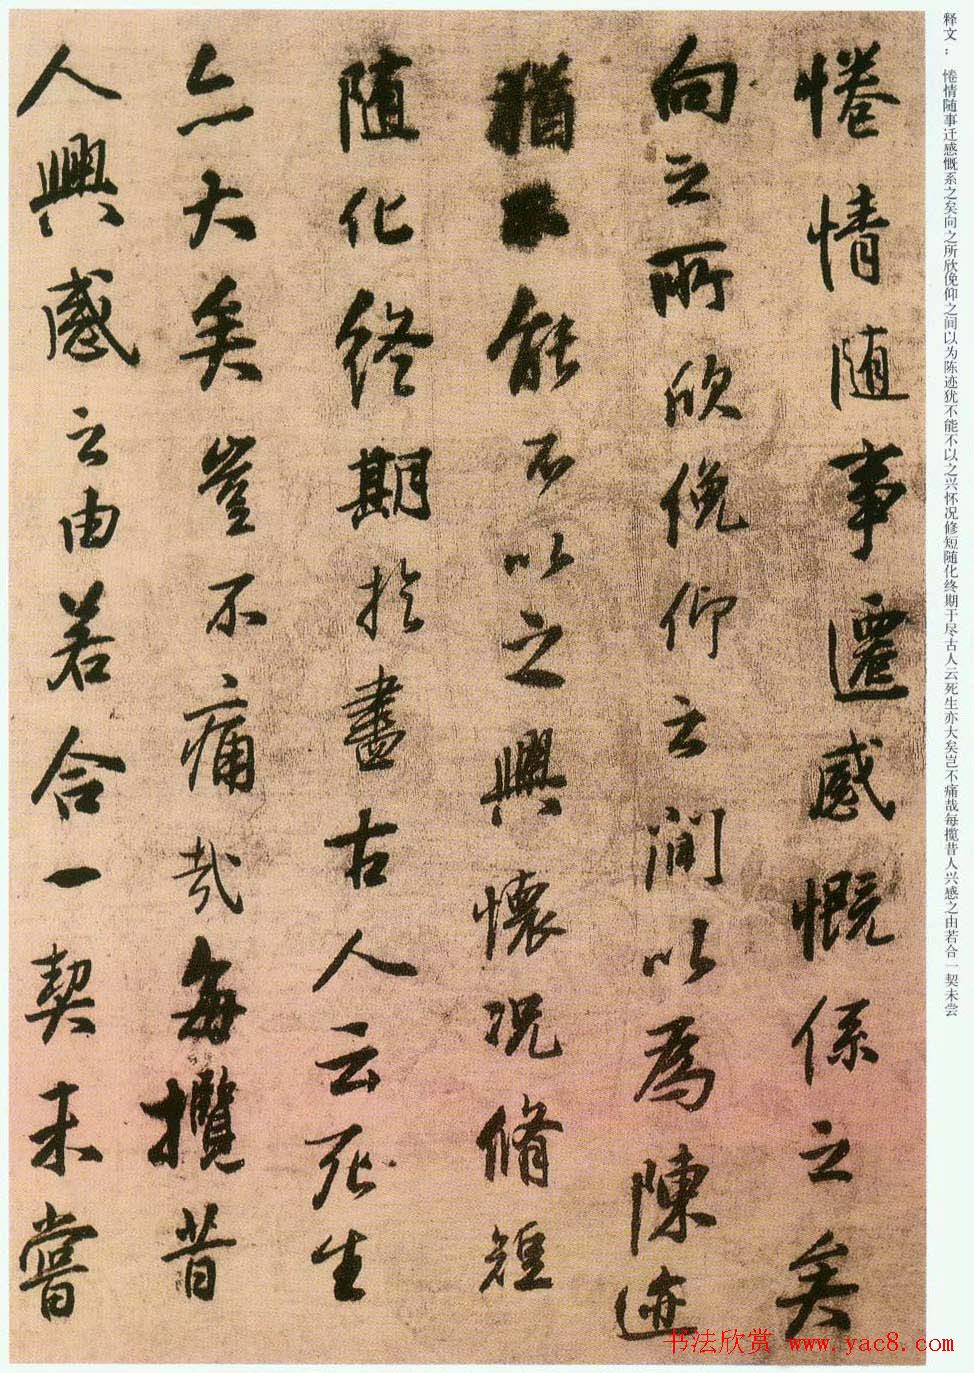 释文： 惓情随事迁感慨系之矣向之所欣俛仰之间以为陈迹犹不能不以之兴怀况修短随化终期于尽古人云死生亦大矣岂不痛哉每揽昔人兴感之由若合一契未尝
惓情随事遷感慨係之矣
向之所欣俛仰之間以為陳迹
猶不能不以之興懷況脩短
随化終期於盡古人云死生
亦大矣豈不痛哉每攬昔
人興感之由若合一契未嘗
书法欣赏 www.yac8.com